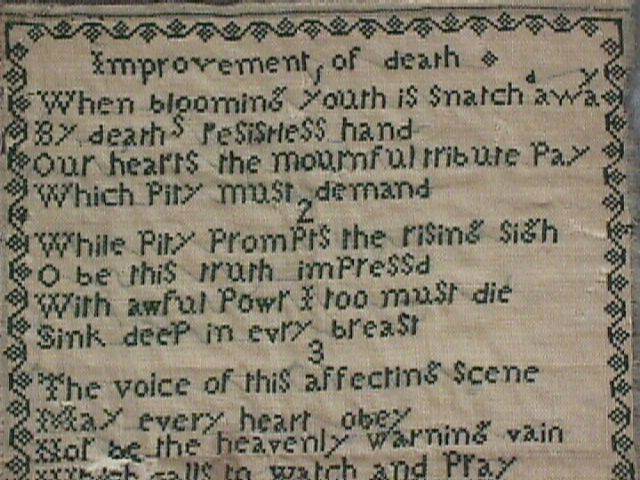 Improvement of death
1
When blooming youth is snatchd away
By deaths resistless hand
Our hearts the mournful tribute Pay
Which Pity must demand
2
While Pity Prompts the rising sigh
O be this truth imPressd
With awful Powr I too must die
Sink deeP in evry breast
3
The voice of this affecting scene
May every heart obey
Nor be the heavenly warning vain
Which calls to watch and Pray